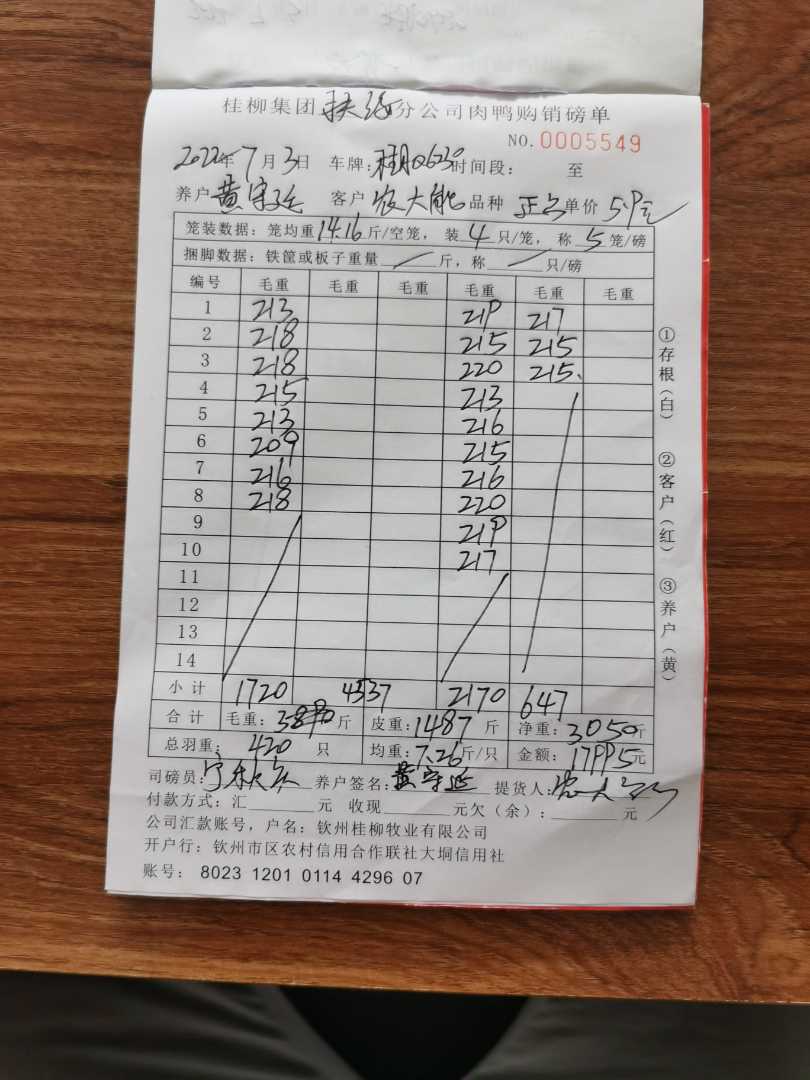 桂柳集团扶绥分公司肉鸭购销磅单
NO. 0005549
2022年7月3日 车牌: 时间段: 至
养户 黄守延 客户 农大能 品种 单价 5.9元
笼装数据: 笼均重14.16斤/空笼, 装4只/笼, 称5笼/磅
捆脚数据: 铁筐或板子重量 斤, 称 只/磅
编号 毛重 毛重 毛重 毛重 毛重 毛重
1 213 219 217
2 218 215 215
3 218 220 215
4 215 213
5 213 216
6 209 215
7 216 216
8 218 220
9 219
10 217
11
12
13
14
小计 1720 4537 2170 647
合计 毛重: 斤 皮重: 1487 斤 净重: 3050斤
总羽重: 420 只 均重: 7.26斤/只 金额: 17995元
司磅员: 养户签名: 黄守延 提货人:
付款方式: 汇 元 收现 元欠(余): 元
公司汇款账号, 户名: 钦州桂柳牧业有限公司
开户行: 钦州市区农村信用合作联社大垌信用社
账号: 8023 1201 0114 4296 07
①存根(白) ②客户(红) ③养户(黄)